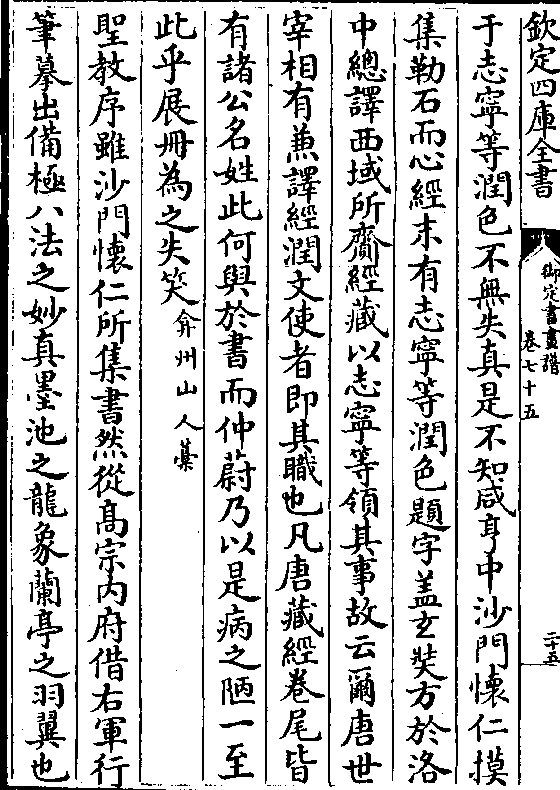 欽定四庫全書
御定書畫譜
卷七十五
二十五
于志寧等潤色不無失真是不知咸亨中沙門懷仁摸
集勒石而心經末有志寧等潤色題字盖玄奘方於洛
中總譯西域所齎經藏以志寧等領其事故云爾唐世
宰相有兼譯經潤文使者即其職也凡唐藏經卷尾皆
有諸公名姓此何與於書而仲蔚乃以是病之陋一至
此乎展冊為之失笑弇州山人藁
聖教序雖沙門懷仁所集書然從高宗内府借右軍行
筆摹出備極八法之妙真墨池之龍象蘭亭之羽翼也